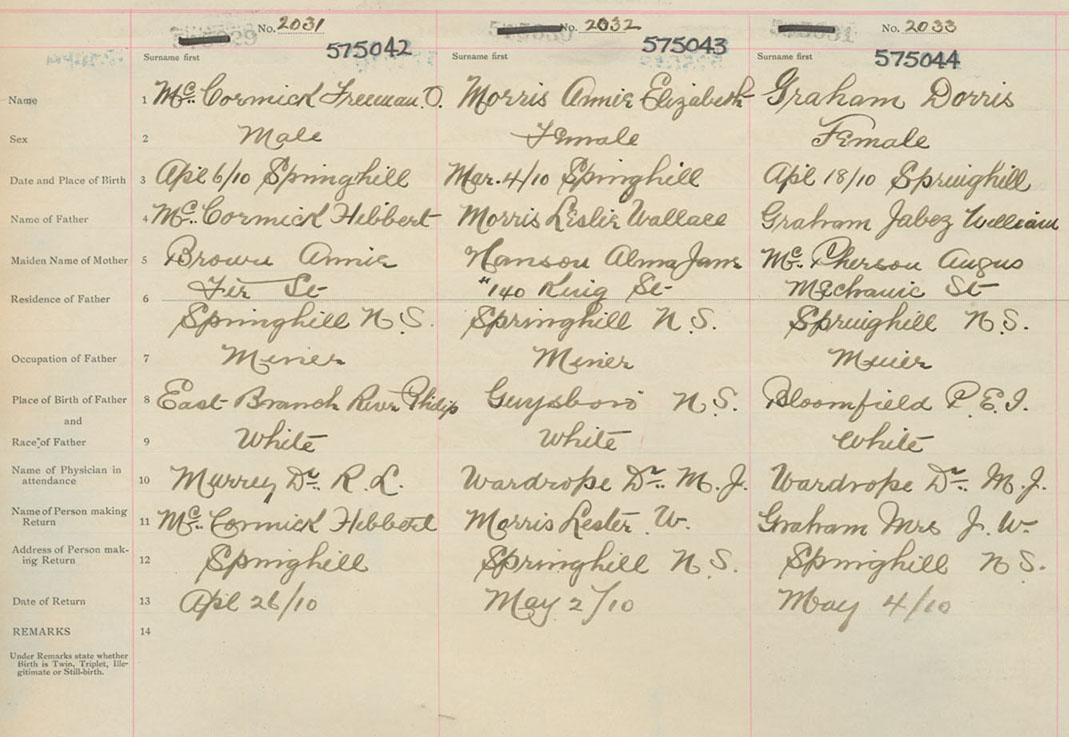 No. 2031 No. 2032 No. 2033
575042 575043 575044
Surname first Surname first Surname first
Name 1 McCormick Freeman. O. Morris Annie Elizabeth Graham Dorris
Sex 2 Male Female Female
Date and Place of Birth 3 Apl 6/10 Springhill Mar. 4/10 Springhill Apl 18/10 Springhill
Name of Father 4 McCormick Hibbert Morris Leslie Wallace Graham Jabez William
Maiden Name of Mother 5 Brown Annie Hanson Alma Jane McPherson Angus
Residence of Father 6 Fir St #140 King St Mechanic St
Springhill N.S. Springhill N.S. Springhill N.S.
Occupation of Father 7 Miner Miner Miner
Place of Birth of Father 8 East Branch River Philip Guysboro N.S. Bloomfield P.E.I.
and
Race of Father 9 White White White
Name of Physician in
attendance 10 Murray Dr. R. L. Wardrope Dr. M. J. Wardrope Dr. M. J.
Name of Person making
Return 11 McCormick Hibbert Morris Lester W. Graham Mrs J. W.
Address of Person mak-
ing Return 12 Springhill Springhill N.S. Springhill N.S.
Date of Return 13 Apl 26/10 May 2/10 May 4/10
REMARKS 14
Under Remarks state whether
Birth is Twin, Triplet, Ille-
gitimate or Still-birth.